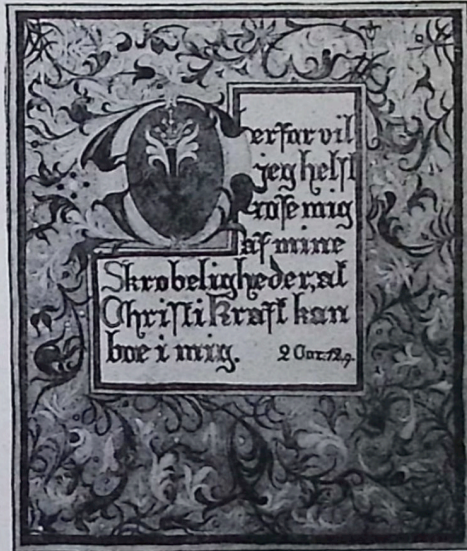 Derfor vil
jeg helst
rose mig
af mine
Skrøbeligheder, at
Christi Kraft kan
boe i mig. 2 Cor. 12,9.